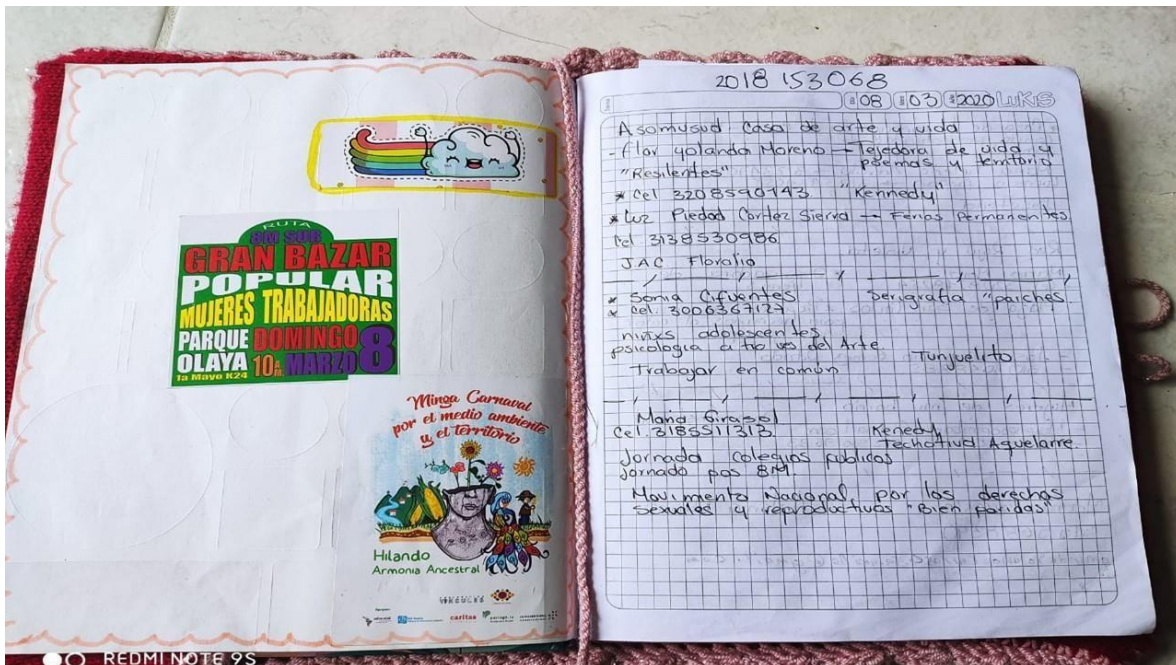 RUTA
8M SUR
GRAN BAZAR
POPULAR
MUJERES TRABAJADORAS
PARQUE DOMINGO
OLAYA 10 A.M. MARZO 8
1a Mayo K24
Minga Carnaval
por el medio ambiente
y el territorio
Hilando
Armonia Ancestral
caritas
REDMI NOTE 9S
2018 153068
08 03 2020 LuKiS
Asomusud Casa de arte y vida
- Flor yolanda Moreno — Tejedora de vida y
poemas y territorio
"Resilentes"
* Cel 3208590143 "Kennedy"
* Luz Piedad Cortez Sierra — Ferias Permanentes
Cel 3138530986
JAC Floralia
* Sonia Cifuentes Serigrafia "parches
* Cel. 3006367127
niñxs adolescentes
psicologia a traves del Arte
Trabajar en común Tunjuelito
Maria Girasol
Cel. 3185511313 Kenedy
Techotiva Aquelarre
Jornada Colegios publicos
Jornada pos 8M
Movimento Nacional, por los derechos
sexuales y reproductivos "Bien paridas"